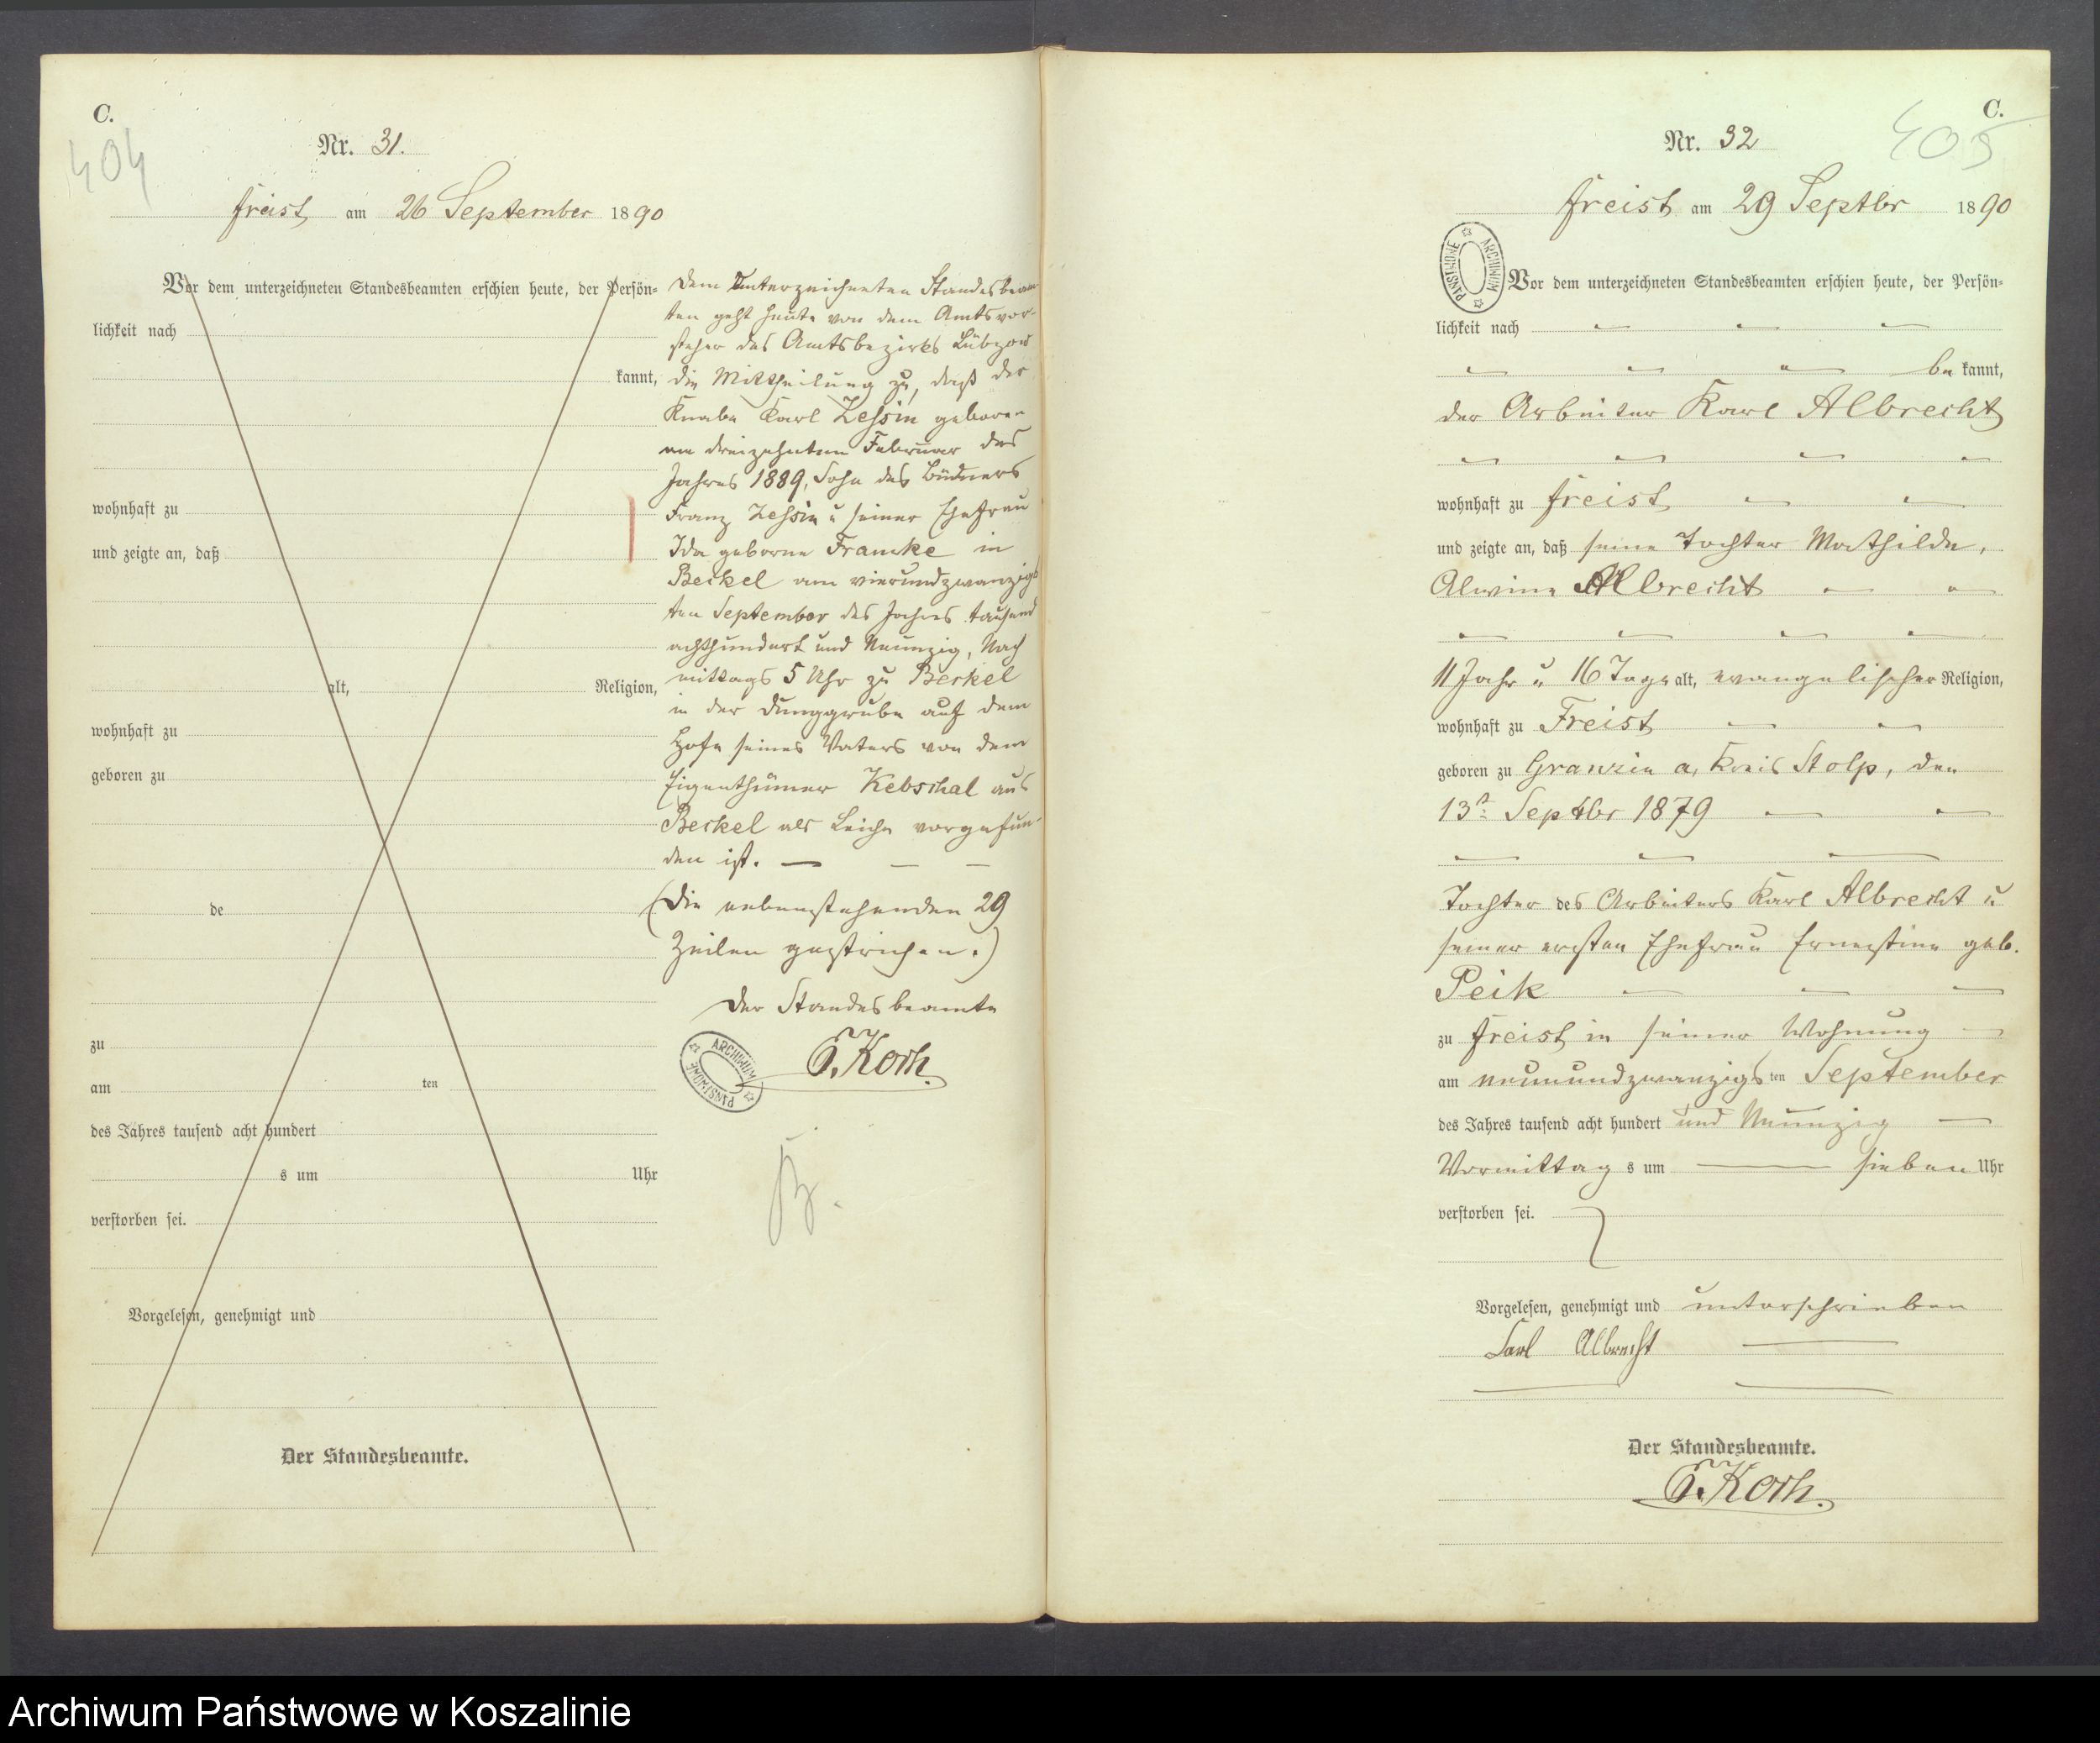 C.
404
Nr. 31.
Freist am 26 September 1890
Vor dem unterzeichneten Standesbeamten erschien heute, der Persön-
lichkeit nach
kannt,
wohnhaft zu
und zeigte an, daß
alt, Religion,
wohnhaft zu
geboren zu
de
zu
am ten
des Jahres tausend acht hundert
s um Uhr
verstorben sei.
Vorgelesen, genehmigt und
Der Standesbeamte.
Dem Unterzeichneten Standesbeam-
ten geht heute von dem Amtsvor-
steher des Amtsbezirks Lübzow
die Mittheilung zu, daß der
Knabe Karl Zessin geboren
am dreizehnten Februar des
Jahres 1889, Sohn des Büdners
Franz Zessin u seiner Ehefrau
Ida geborne Francke in
Beckel am vierundzwanzigs
ten September des Jahres tausend
achthundert und Neunzig, Nach
mittags 5 Uhr zu Beckel
in der Dunggrube auf dem
Hofe seines Vaters von dem
Eigenthümer Kebschal aus
Beckel als Leiche vorgefun-
den ist. —
(Die nebenstehenden 29
Zeilen gestrichen.)
Der Standesbeamte
ARCHIWUM PAŃSTWOWE
Koch.
C.
405
Nr. 32
Freist am 29 Septbr 1890
ARCHIWUM PAŃSTWOWE
Vor dem unterzeichneten Standesbeamten erschien heute, der Persön-
lichkeit nach
be kannt,
der Arbeiter Karl Albrecht
wohnhaft zu Freist
und zeigte an, daß seine Tochter Mathilde,
Alwine Albrecht
11 Jahr u 16 Tage alt, evangelischer Religion,
wohnhaft zu Freist
geboren zu Granzin a, Kreis Stolp, den
13t Septbr 1879
Tochter des Arbeiters Karl Albrecht u
seiner ersten Ehefrau Ernestine geb.
Peik
zu Freist in seiner Wohnung
am neunundzwanzigs ten September
des Jahres tausend acht hundert und Neunzig
Vormittag s um sieben Uhr
verstorben sei.
Vorgelesen, genehmigt und unterschrieben
Carl Albrecht
Der Standesbeamte.
Koch.
Archiwum Państwowe w Koszalinie